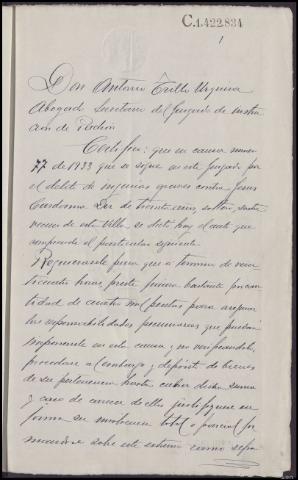 C.1.422.834
1
Don Antonio Trillo
Abogado Secretario del Juzgado de instruc
cion de Padrón
Certifico: que en causa numero
77 de 1933 que se sigue en este Juzgado por
el delito de injurias graves contra Jesus
Cardama de treinta años, soltero, sastre
vecino de esta Villa, se dictó hoy el auto que
comprende el particular siguiente
Requierasele para que a termino de vein
ticuatro horas, preste fianza bastante por can
tidad de cuatro mil pesetas para asegurar
las responsabilidades pecuniarias que puedan
imponersele en esta causa y no verificandolo,
procedase al embargo y depósito de bienes
de su pertenencia hasta cubrir dicha suma
y caso de carecer de ellos justifiquese en
forma su insolvencia total o parcial for
mandose sobre este extremo ramo sepa